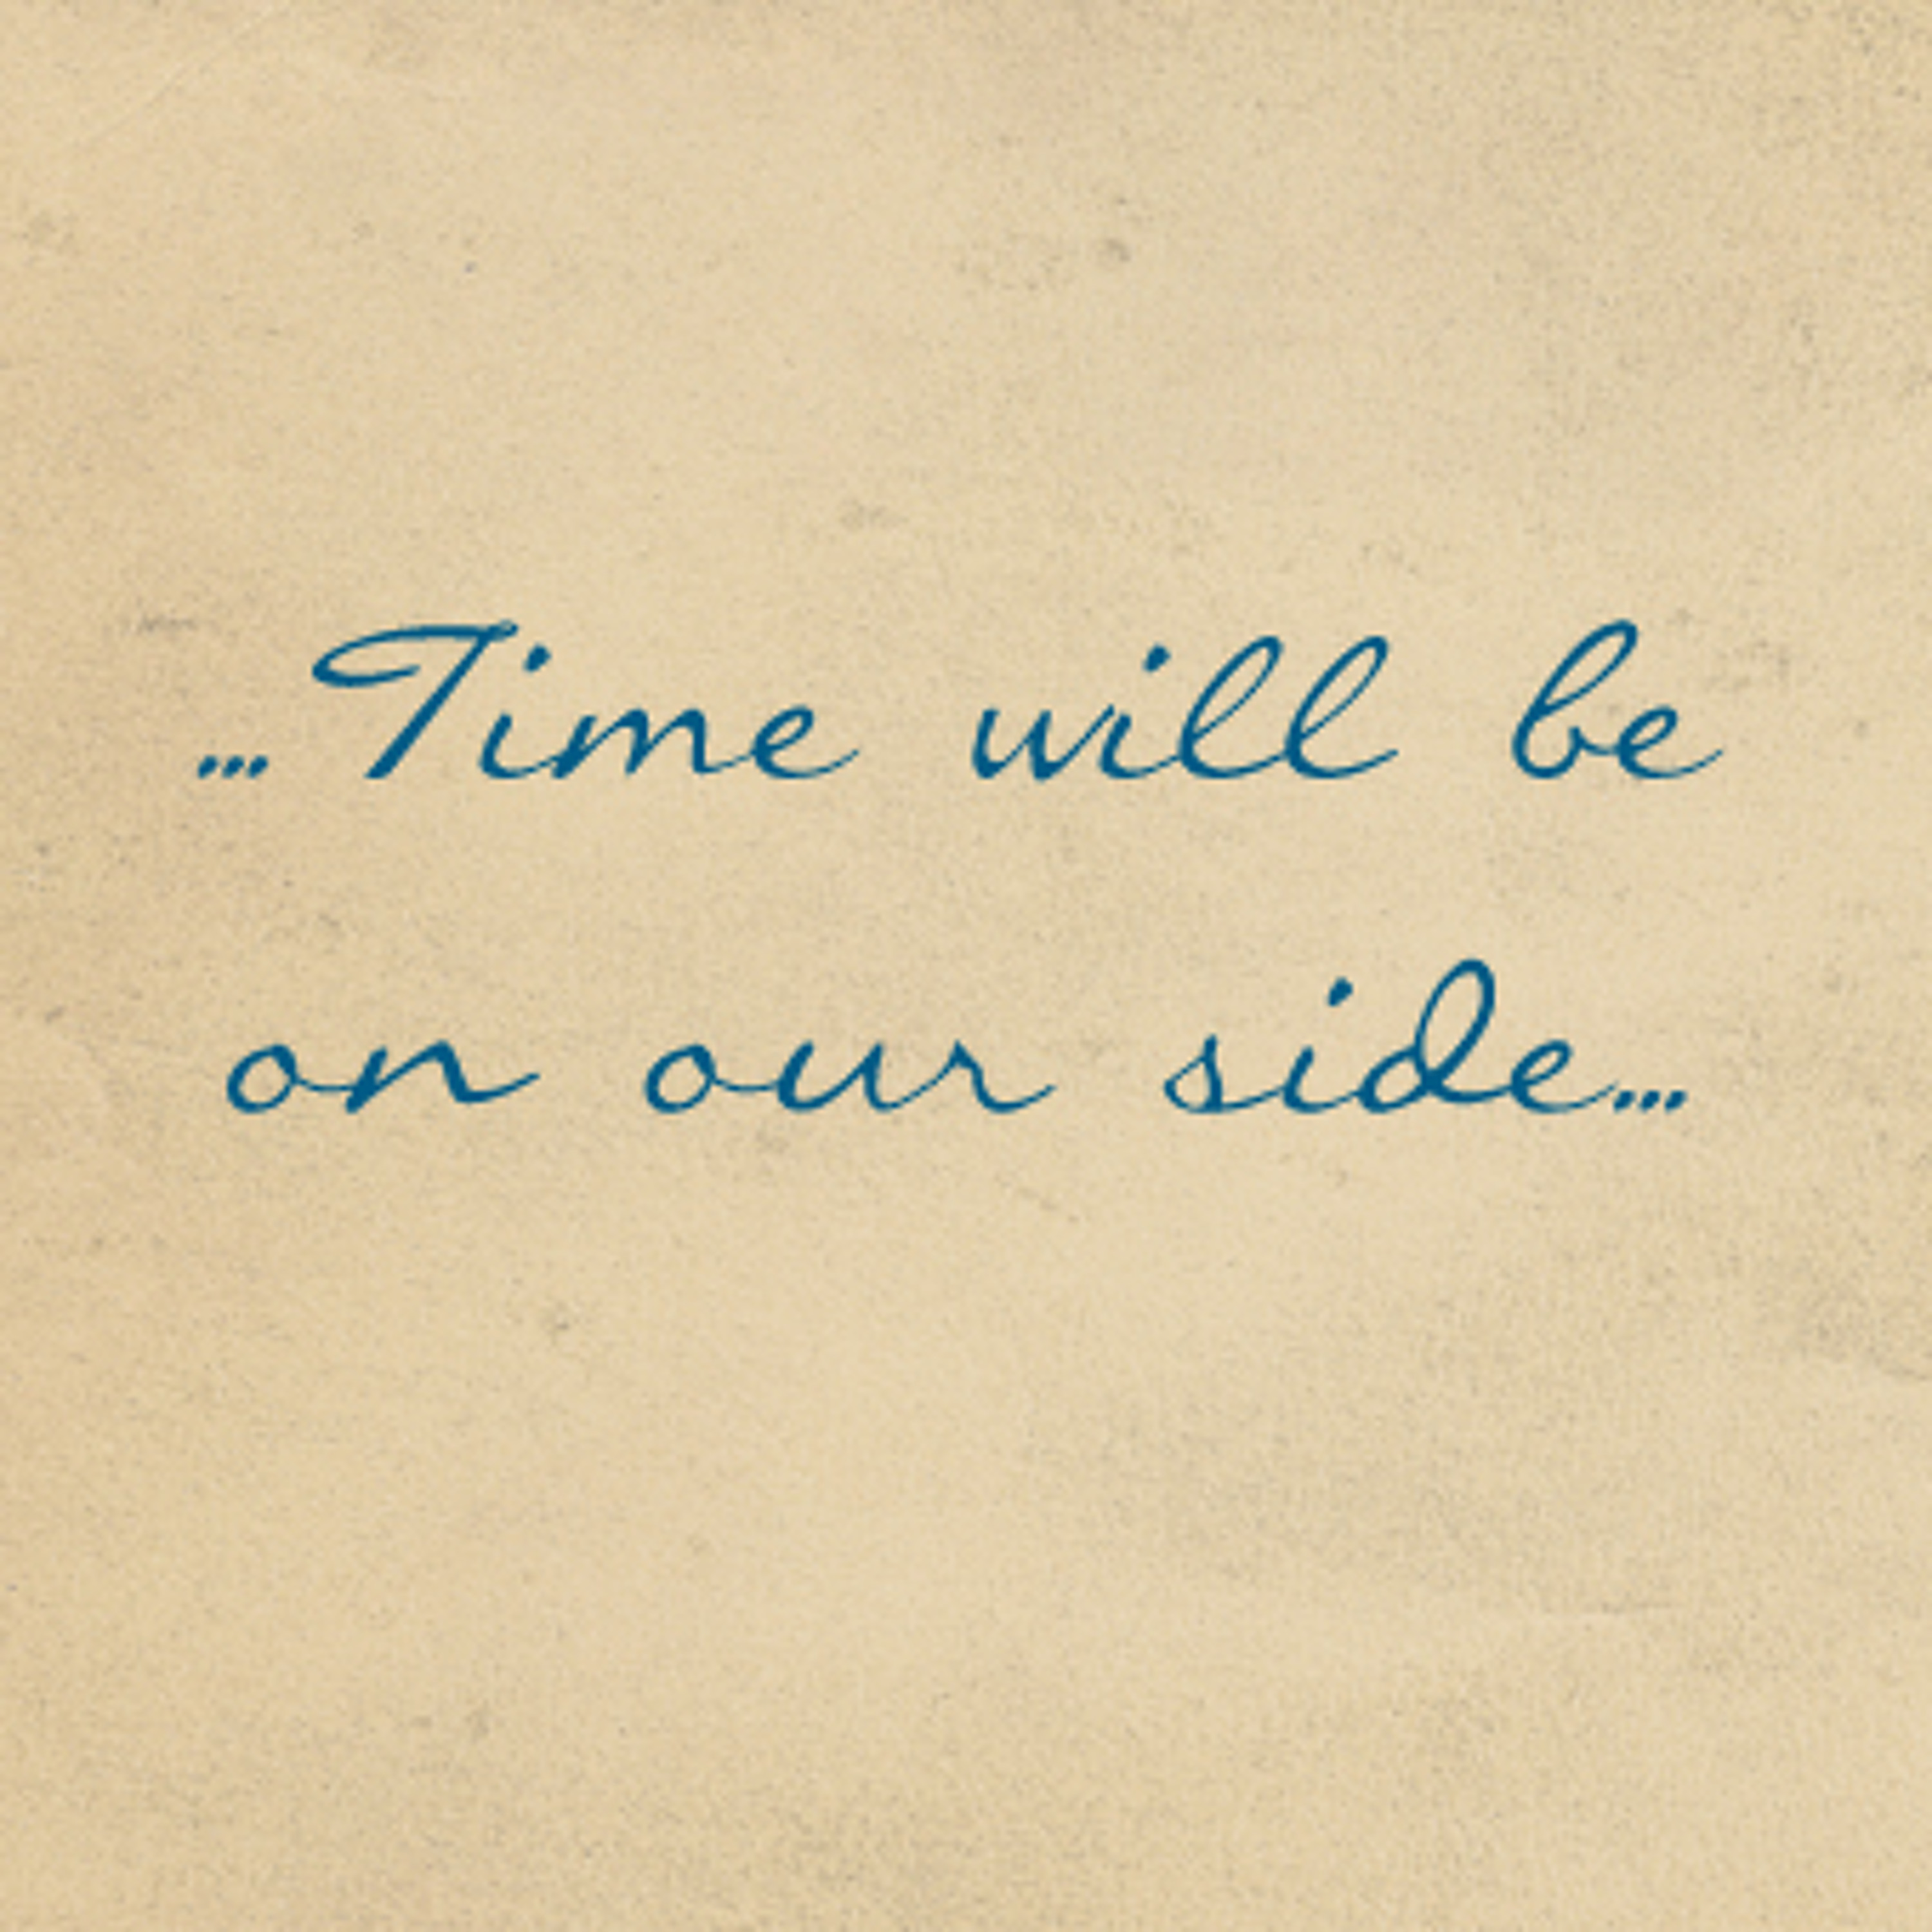 ...Time will be
on our side...